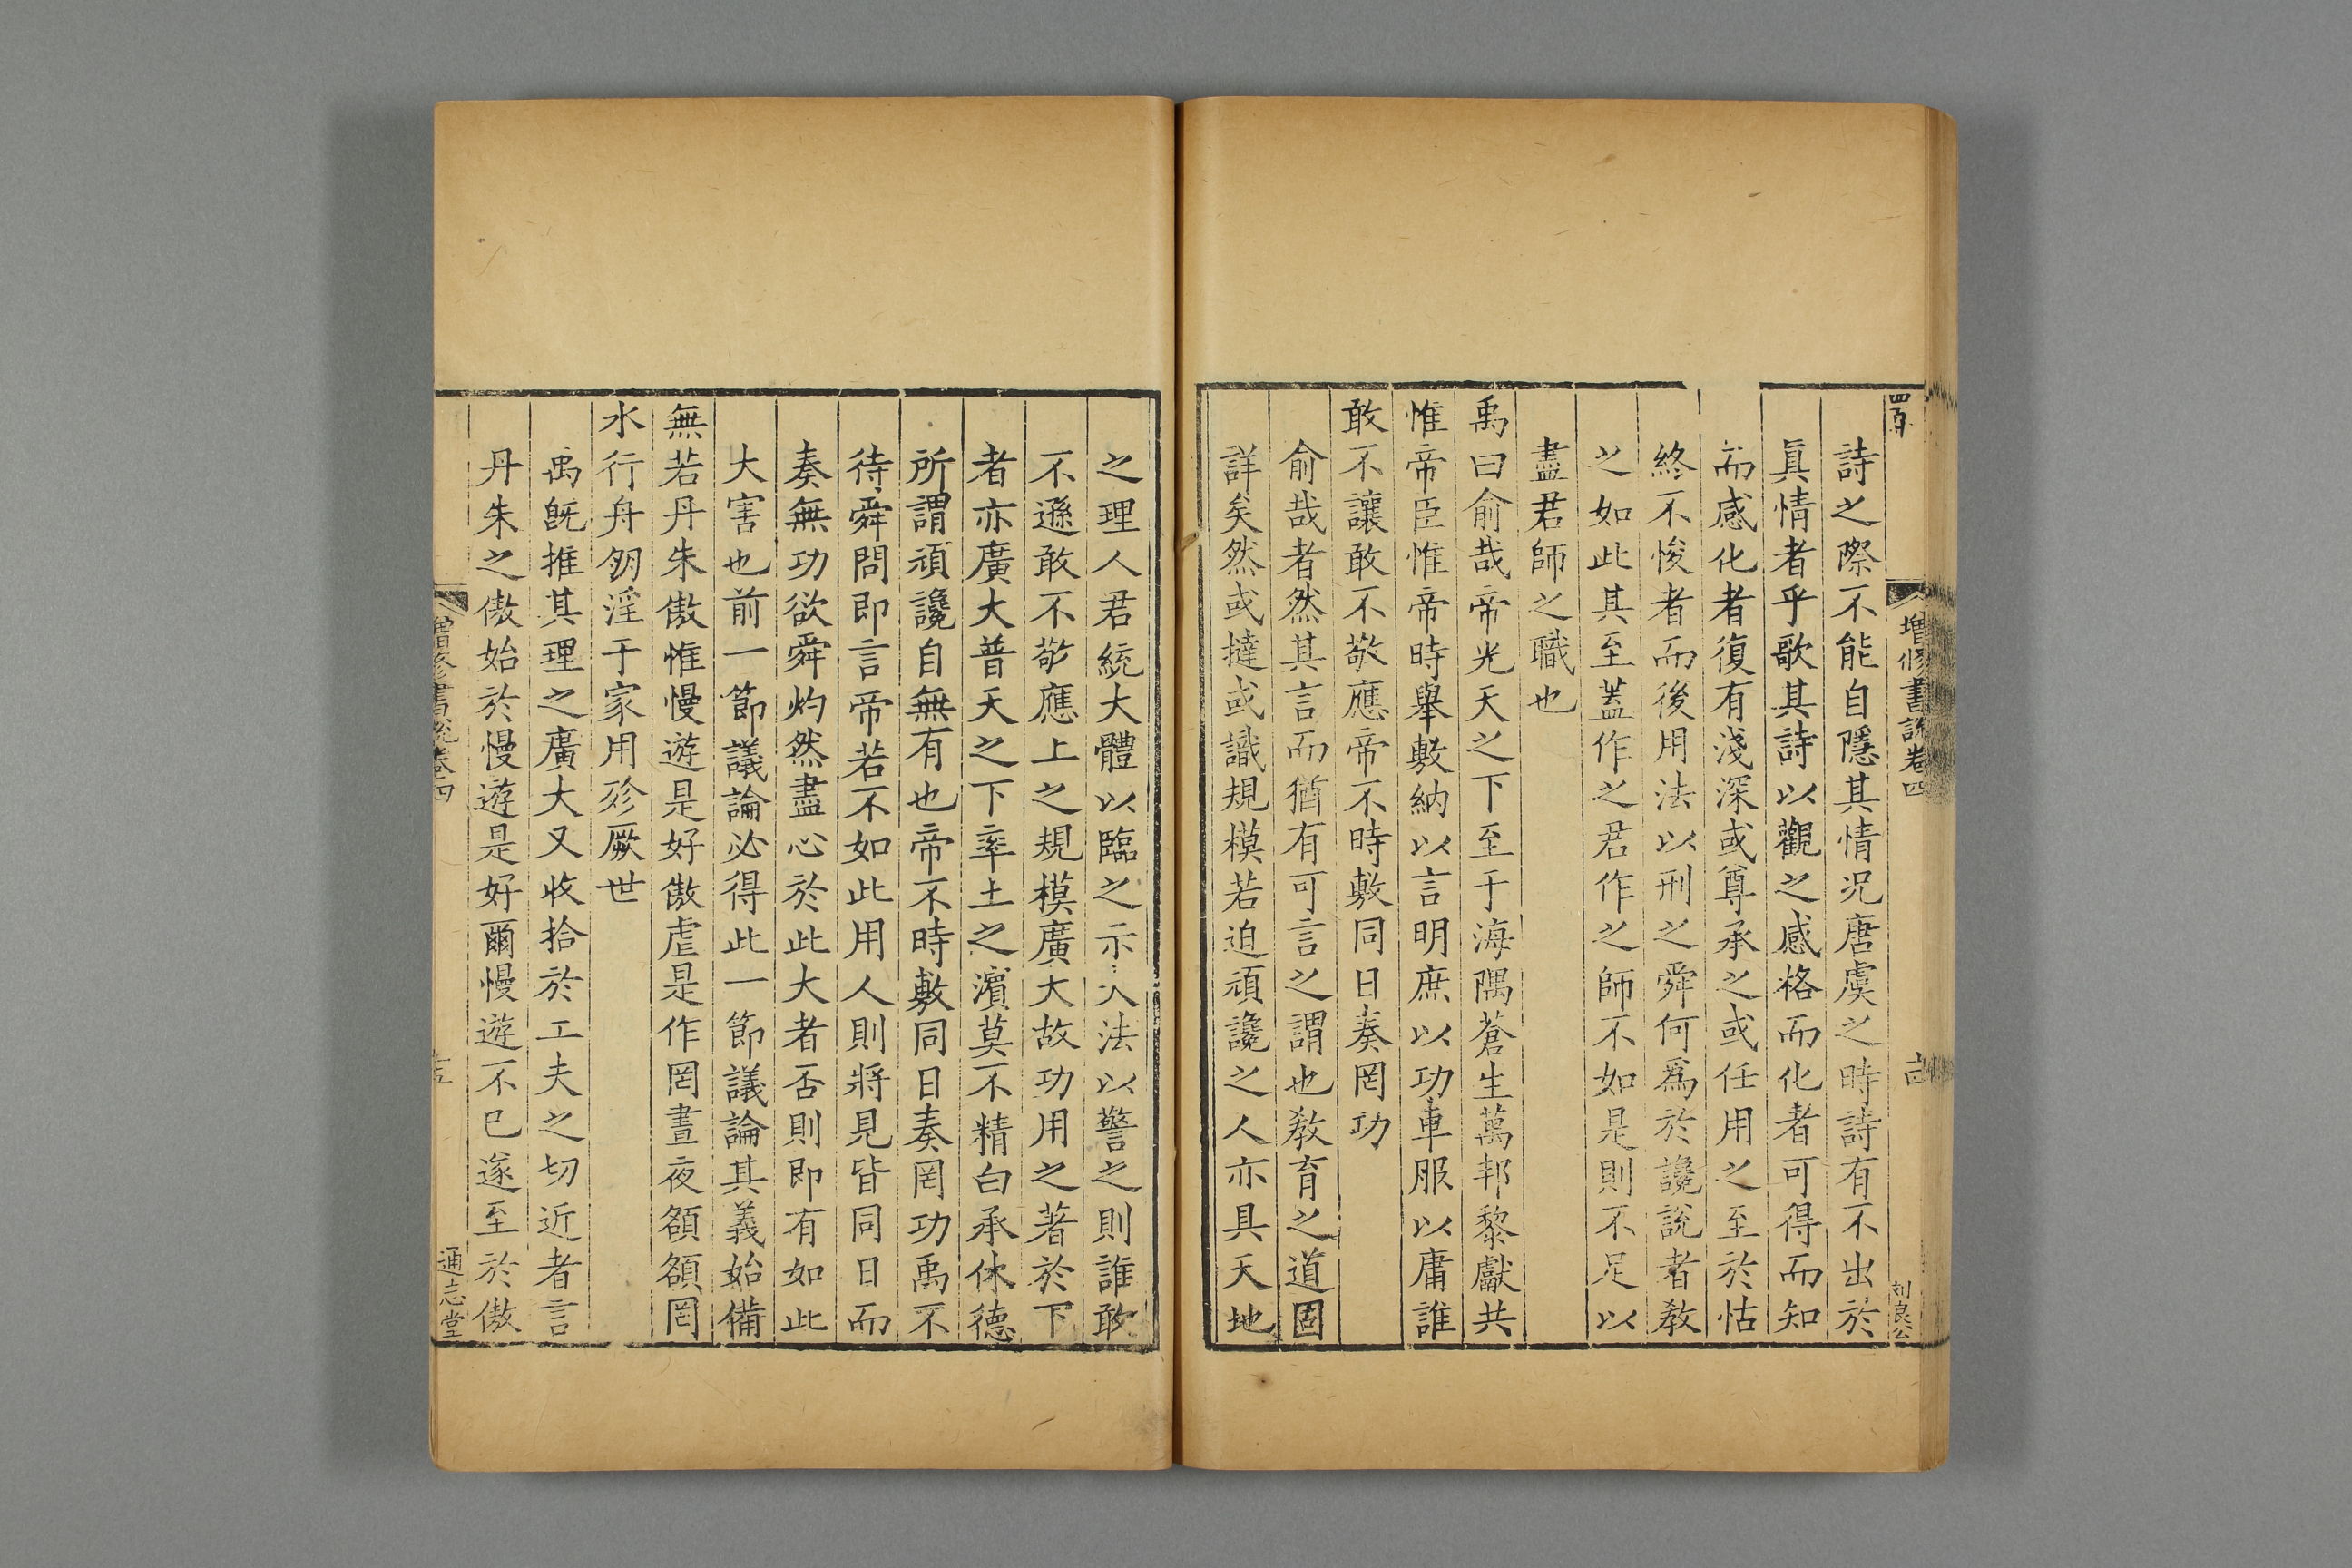 增修書說卷四
劉良公
詩之際不能自隱其情況唐虞之時詩有不出於
眞情者乎歌其詩以觀之感格而化者可得而知
而感化者復有淺深或尊承之或任用之至於怙
終不悛者而後用法以刑之舜何爲於讒說者敎
之如此其至蓋作之君作之師不如是則不足以
盡君師之職也
禹曰俞哉帝光天之下至于海隅蒼生萬邦黎獻共
惟帝臣惟帝時舉敷納以言明庶以功車服以庸誰
敢不讓敢不敬應帝不時敷同日奏罔功
俞哉者然其言而猶有可言之謂也敎育之道固
詳矣然或撻或識規模若迫頑讒之人亦具天地
之理人君統大體以臨之示大法以警之則誰敢
不遜敢不敬應上之規模廣大故功用之著於下
者亦廣大普天之下率土之濱莫不精白承休德
所謂頑讒自無有也帝不時敷同日奏罔功禹不
待舜問即言帝若不如此用人則將見皆同日而
奏無功欲舜灼然盡心於此大者否則即有如此
大害也前一節議論必得此一節議論其義始備
無若丹朱傲惟慢遊是好傲虐是作罔晝夜頟頟罔
水行舟朋淫于家用殄厥世
禹旣推其理之廣大又收拾於工夫之切近者言
丹朱之傲始於慢遊是好爾慢遊不已遂至於傲
增修書說卷四
十五
通志堂